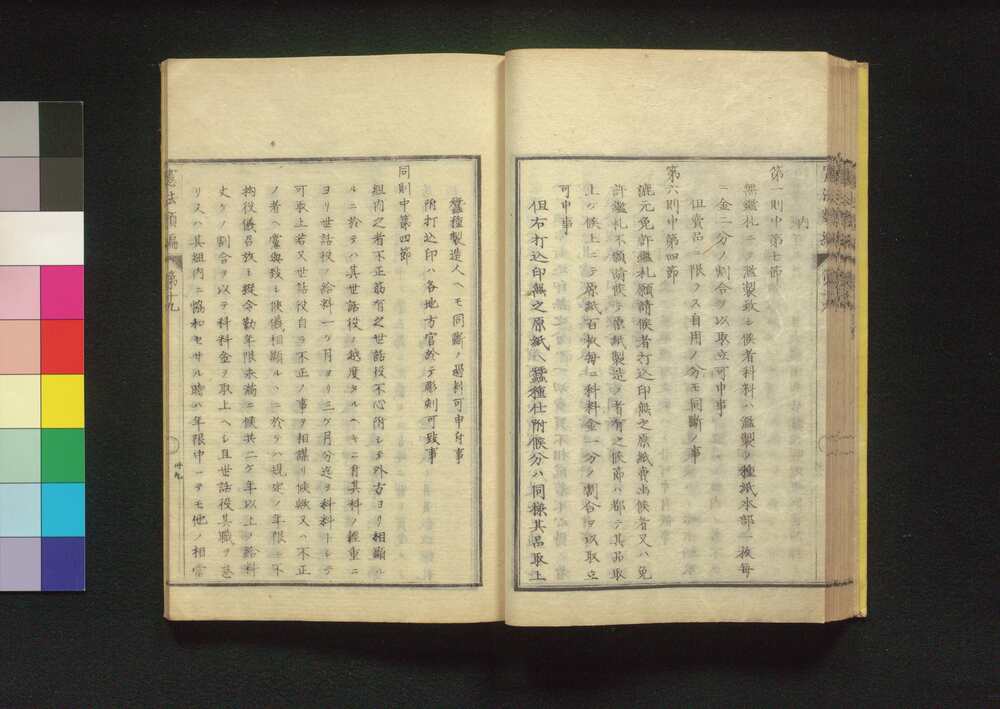 内
第一則中第七節
無鑑札ニテ濫製致シ候者科料ハ濫製ノ種紙本部一枚每
ニ金二分ノ割合ヲ以取立可申事
但賣品ニ限ラス自用ノ分モ同斷ノ事
第六則中第四節
漉元免許鑑札願請候者打込印無之原紙賣出候者又ハ免
許鑑札不願請候テ原紙製造ノ者有之候節ハ都テ其品取
上ケ候上ニテ原紙百枚每ニ科料金一分ノ割合ヲ以取立
可申事
但右打込印無之原紙ヘ蠶種仕附候分ハ同樣其品取上
蠶種製造人ヘモ同斷ノ過料可申付事
附打込印ハ各地方官於テ彫刻可致事
同則中第四節
組內之者不正筋有之世話役不心附シテ外方ヨリ相顯ル
ルニ於テハ其世話役ノ越度タルヘキニ付其科ノ輕重ニ
ヨリ世話役ノ給料一ケ月ヨリ三ケ月分迄ヲ科料トシテ
可取上若又世話役自ラ不正ノ事ヲ相謀リ候歟又ハ不正
ノ者ヘ黨與致シ候儀相顯ルヽニ於テハ規定ノ年限ニ不
拘役儀召放シ縱令勤年限未滿ニ候共二ケ年以上ノ給料
丈ケノ割合ヲ以テ科料金ヲ取上ヘシ且世話役其職ヲ怠
リ又ハ其組內ニ協和セサル時ハ年限中ニテモ他ノ相當
憲法類編
第十九
卅九